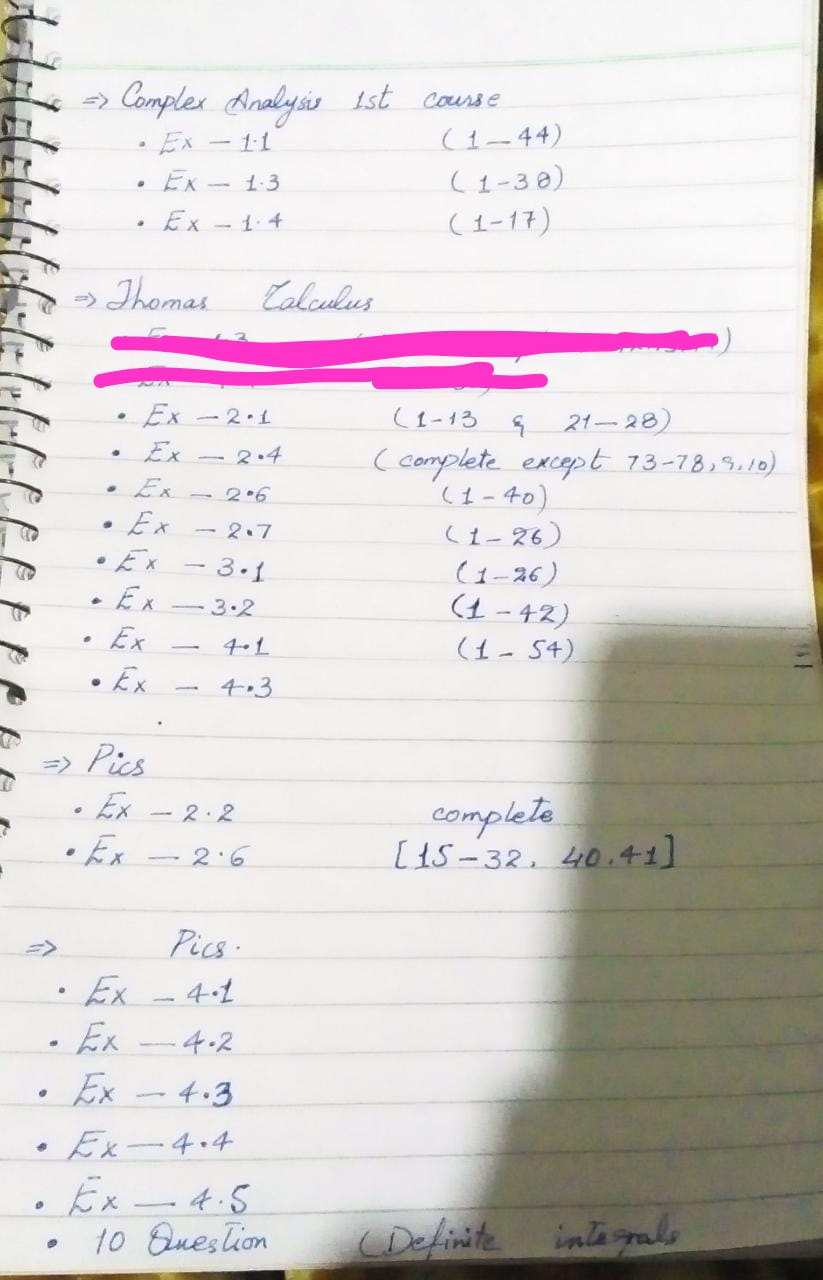 ⇒ Complex Analysis 1st course
• Ex – 1.1 (1–44)
• Ex – 1.3 (1-30)
• Ex – 1.4 (1-17)
⇒ Thomas Calculus
• Ex – 2.1 (1-13 & 21–28)
• Ex – 2.4 (complete except 73-78, 9,10)
• Ex – 2.6 (1-40)
• Ex – 2.7 (1-26)
• Ex – 3.1 (1-26)
• Ex – 3.2 (1-42)
• Ex – 4.1 (1- 54)
• Ex – 4.3
⇒ Pics
• Ex – 2.2 complete
• Ex – 2.6 [15-32, 40.41]
⇒ Pics.
• Ex – 4.1
• Ex – 4.2
• Ex – 4.3
• Ex – 4.4
• Ex – 4.5
• 10 Question (Definite integrals